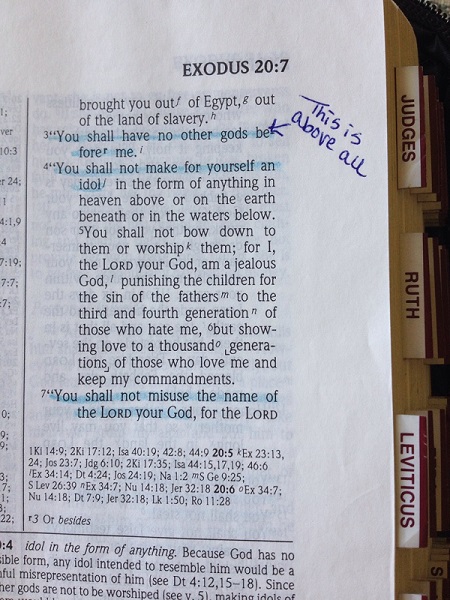 EXODUS 20:7
brought you out f of Egypt, g out
of the land of slavery. h
3 “You shall have no other gods be-
fore r me. i
4 “You shall not make for yourself an
idol j in the form of anything in
heaven above or on the earth
beneath or in the waters below.
5 You shall not bow down to
them or worship k them; for I,
the LORD your God, am a jealous
God, l punishing the children for
the sin of the fathers m to the
third and fourth generation n of
those who hate me, 6 but show-
ing love to a thousand o ⌞genera-
tions⌟ of those who love me and
keep my commandments.
7 “You shall not misuse the name of
the LORD your God, for the LORD
1Ki 14:9; 2Ki 17:12; Isa 40:19; 42:8; 44:9 20:5 k Ex 23:13,
24; Jos 23:7; Jdg 6:10; 2Ki 17:35; Isa 44:15,17,19; 46:6
l Ex 34:14; Dt 4:24; Jos 24:19; Na 1:2 m S Ge 9:25;
S Lev 26:39 n Ex 34:7; Nu 14:18; Jer 32:18 20:6 o Ex 34:7;
Nu 14:18; Dt 7:9; Jer 32:18; Lk 1:50; Ro 11:28
r 3 Or besides
:4 idol in the form of anything. Because God has no
form, any idol intended to resemble him would be a
misrepresentation of him (see Dt 4:12,15–18). Since
gods are not to be worshiped (see v. 5), making idols of
This is
above all
JUDGES
RUTH
LEVITICUS
S
ver
10:3
er 24;
1
4:1,9
4
7:19;
7:7;
7;
0;
9;
9;
3;
7;
1;
22;